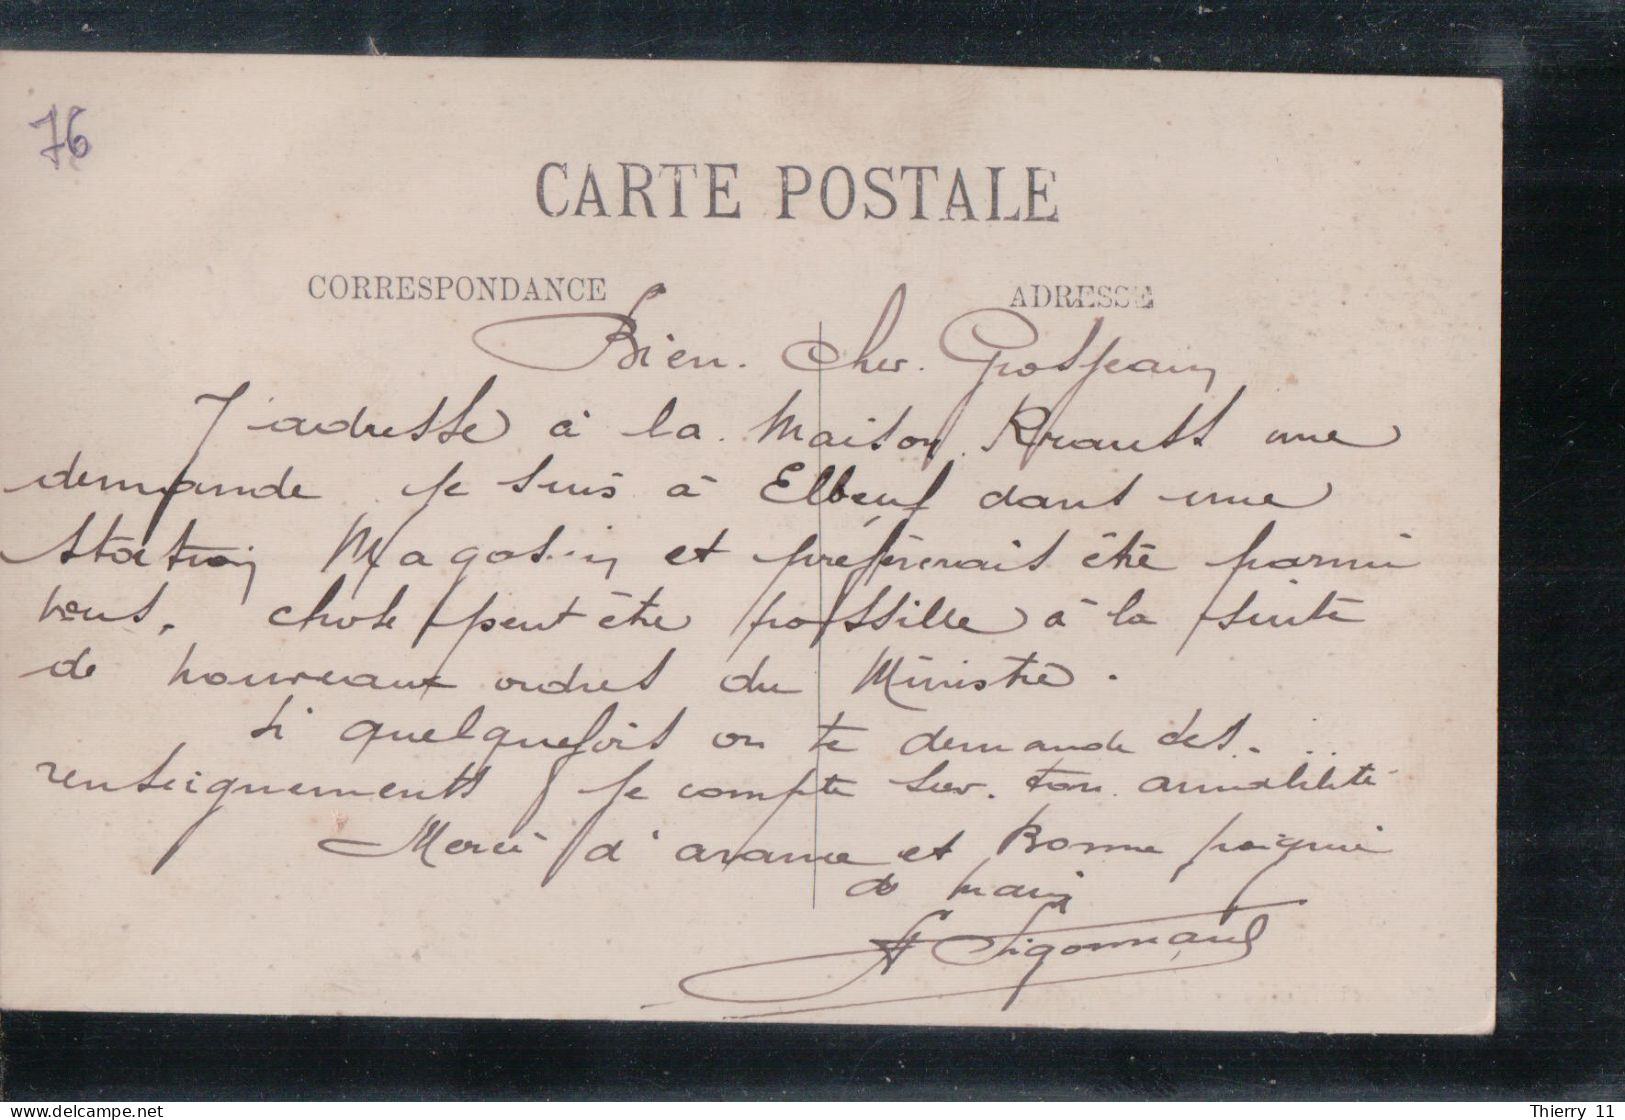 76
CARTE POSTALE
CORRESPONDANCE
ADRESSE
Bien. Cher. Grosjean
J'adresse à la Maison Krauss une
demande je suis à Elbeuf dans une
Station Magasin et préférerais être parmi
vous. chose peut être possible à la suite
de nouveaux ordres du Ministre.
Si quelquefois on te demande des.
renseignements je compte sur. ton amabilité
Merci d'avance et Bonne poignée
de main
Thierry 11